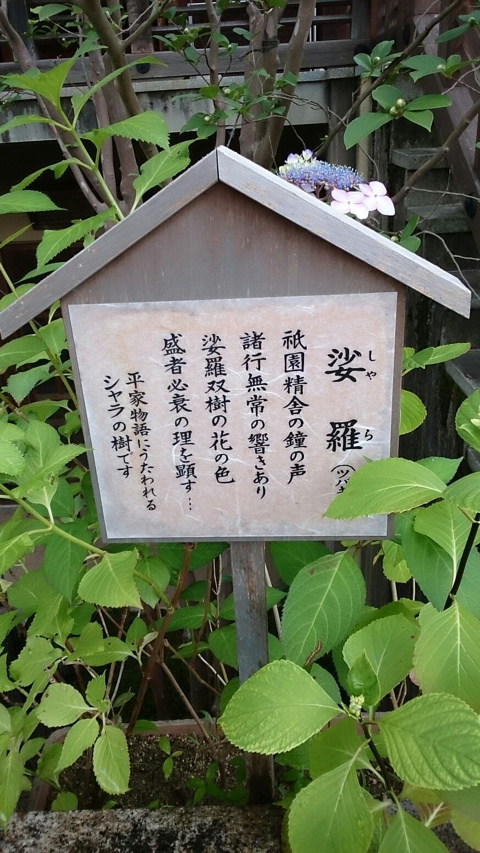 娑羅
しゃら
(ツバキ
祇園精舎の鐘の声
諸行無常の響きあり
娑羅双樹の花の色
盛者必衰の理を顕す…
平家物語にうたわれる
シャラの樹です